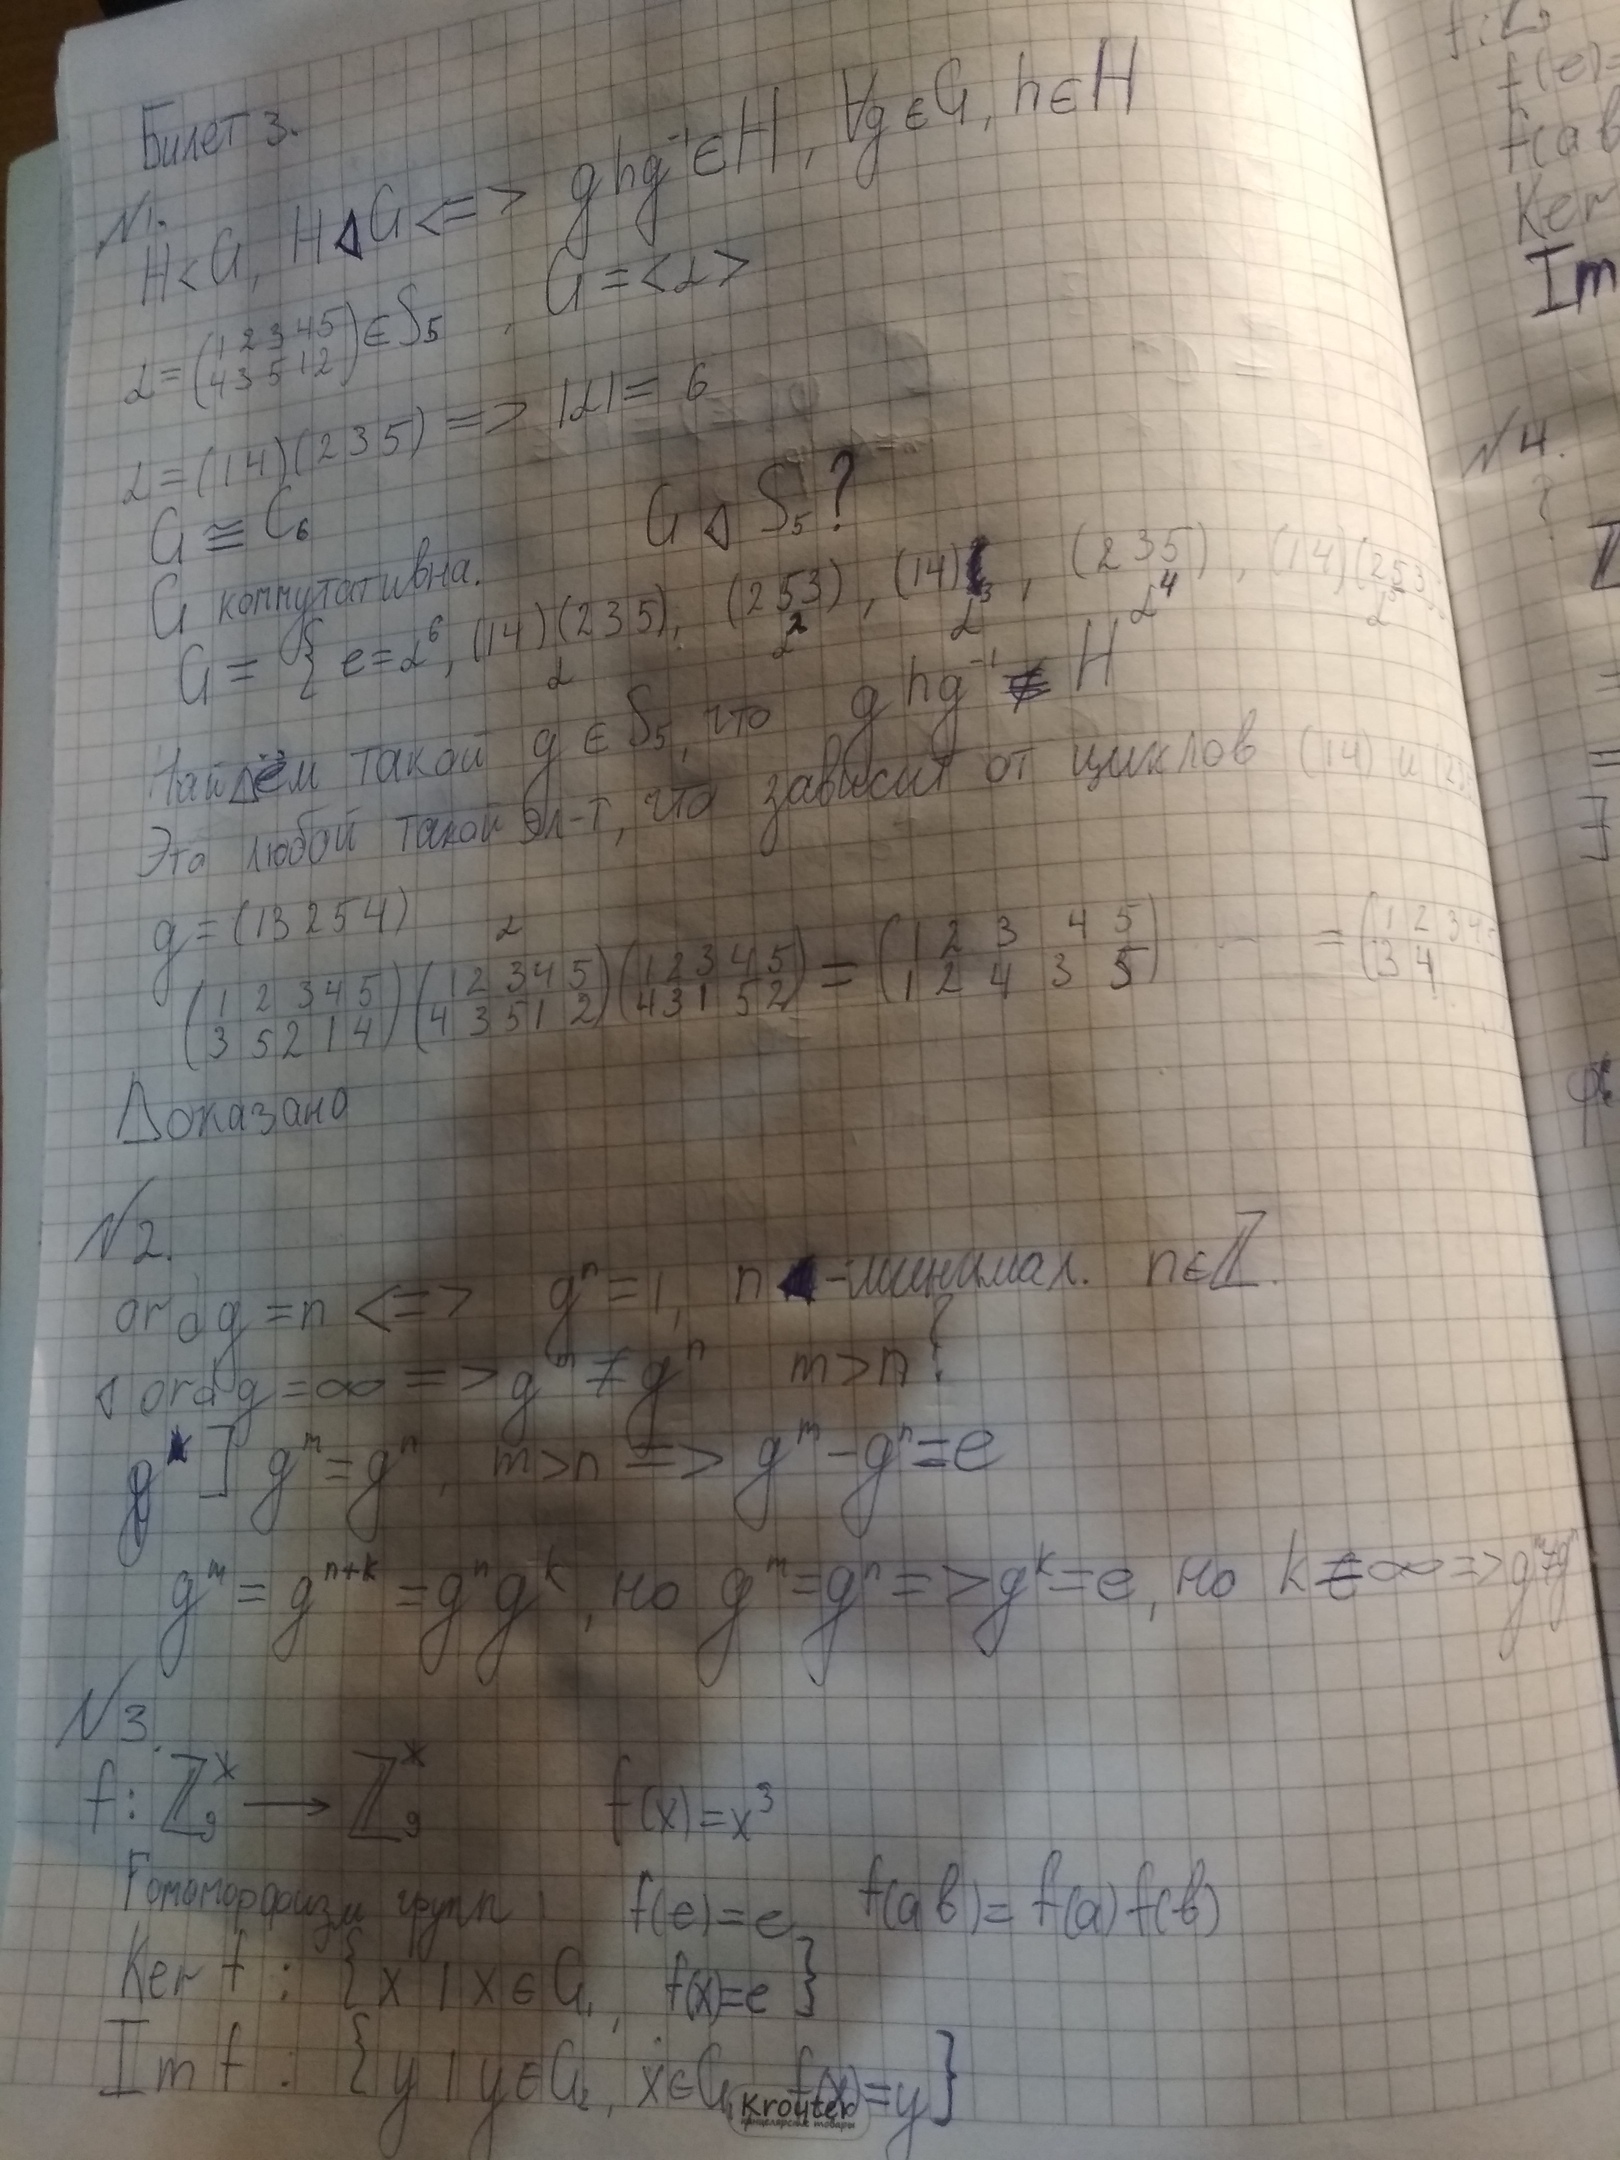 Билет 3.
№1.
H<G, H⊲G <=> ghg⁻¹∈H, ∀g∈G, h∈H
α=(1 2 3 4 5 / 4 3 5 1 2)∈S₅, G=<α>
α=(14)(235) => |α|= 6
G≅C₆ G⊲S₅?
G коммутативна.
G={e=α⁶, (14)(235), (253), (14), (235), (14)(253)
α α² α³ α⁴ α⁵
Найдём такой g∈S₅, что ghg⁻¹∉H
Это любой такой эл-т, что зависит от циклов (14) и (235
g=(13254) α
(1 2 3 4 5 / 3 5 2 1 4)(1 2 3 4 5 / 4 3 5 1 2)(1 2 3 4 5 / 4 3 1 5 2)=(1 2 3 4 5 / 1 2 4 3 5) =(1 2 3 4 / 3 4
Доказано
№2.
ord g=n <=> gⁿ=1, n -минимал. n∈ℤ.
⊲ ord g=∞ => gᵐ≠gⁿ m>n?
] gᵐ=gⁿ, m>n => gᵐ-gⁿ=e
gᵐ=gⁿ⁺ᵏ=gⁿgᵏ, но gᵐ=gⁿ=>gᵏ=e, но k=∞=>gᵐ≠gⁿ
№3.
f: ℤ₉ˣ → ℤ₉ˣ f(x)=x³
Гомоморфизм групп: f(e)=e, f(ab)=f(a)f(b)
Ker f: {x | x∈G₁, f(x)=e}
Im f: {y | y∈G₂, x∈G₁ f(x)=y}
Kroyter
канцелярские товары
f: ℤ₉
f(e)=
f(ab
Ker
Im
№4.
?